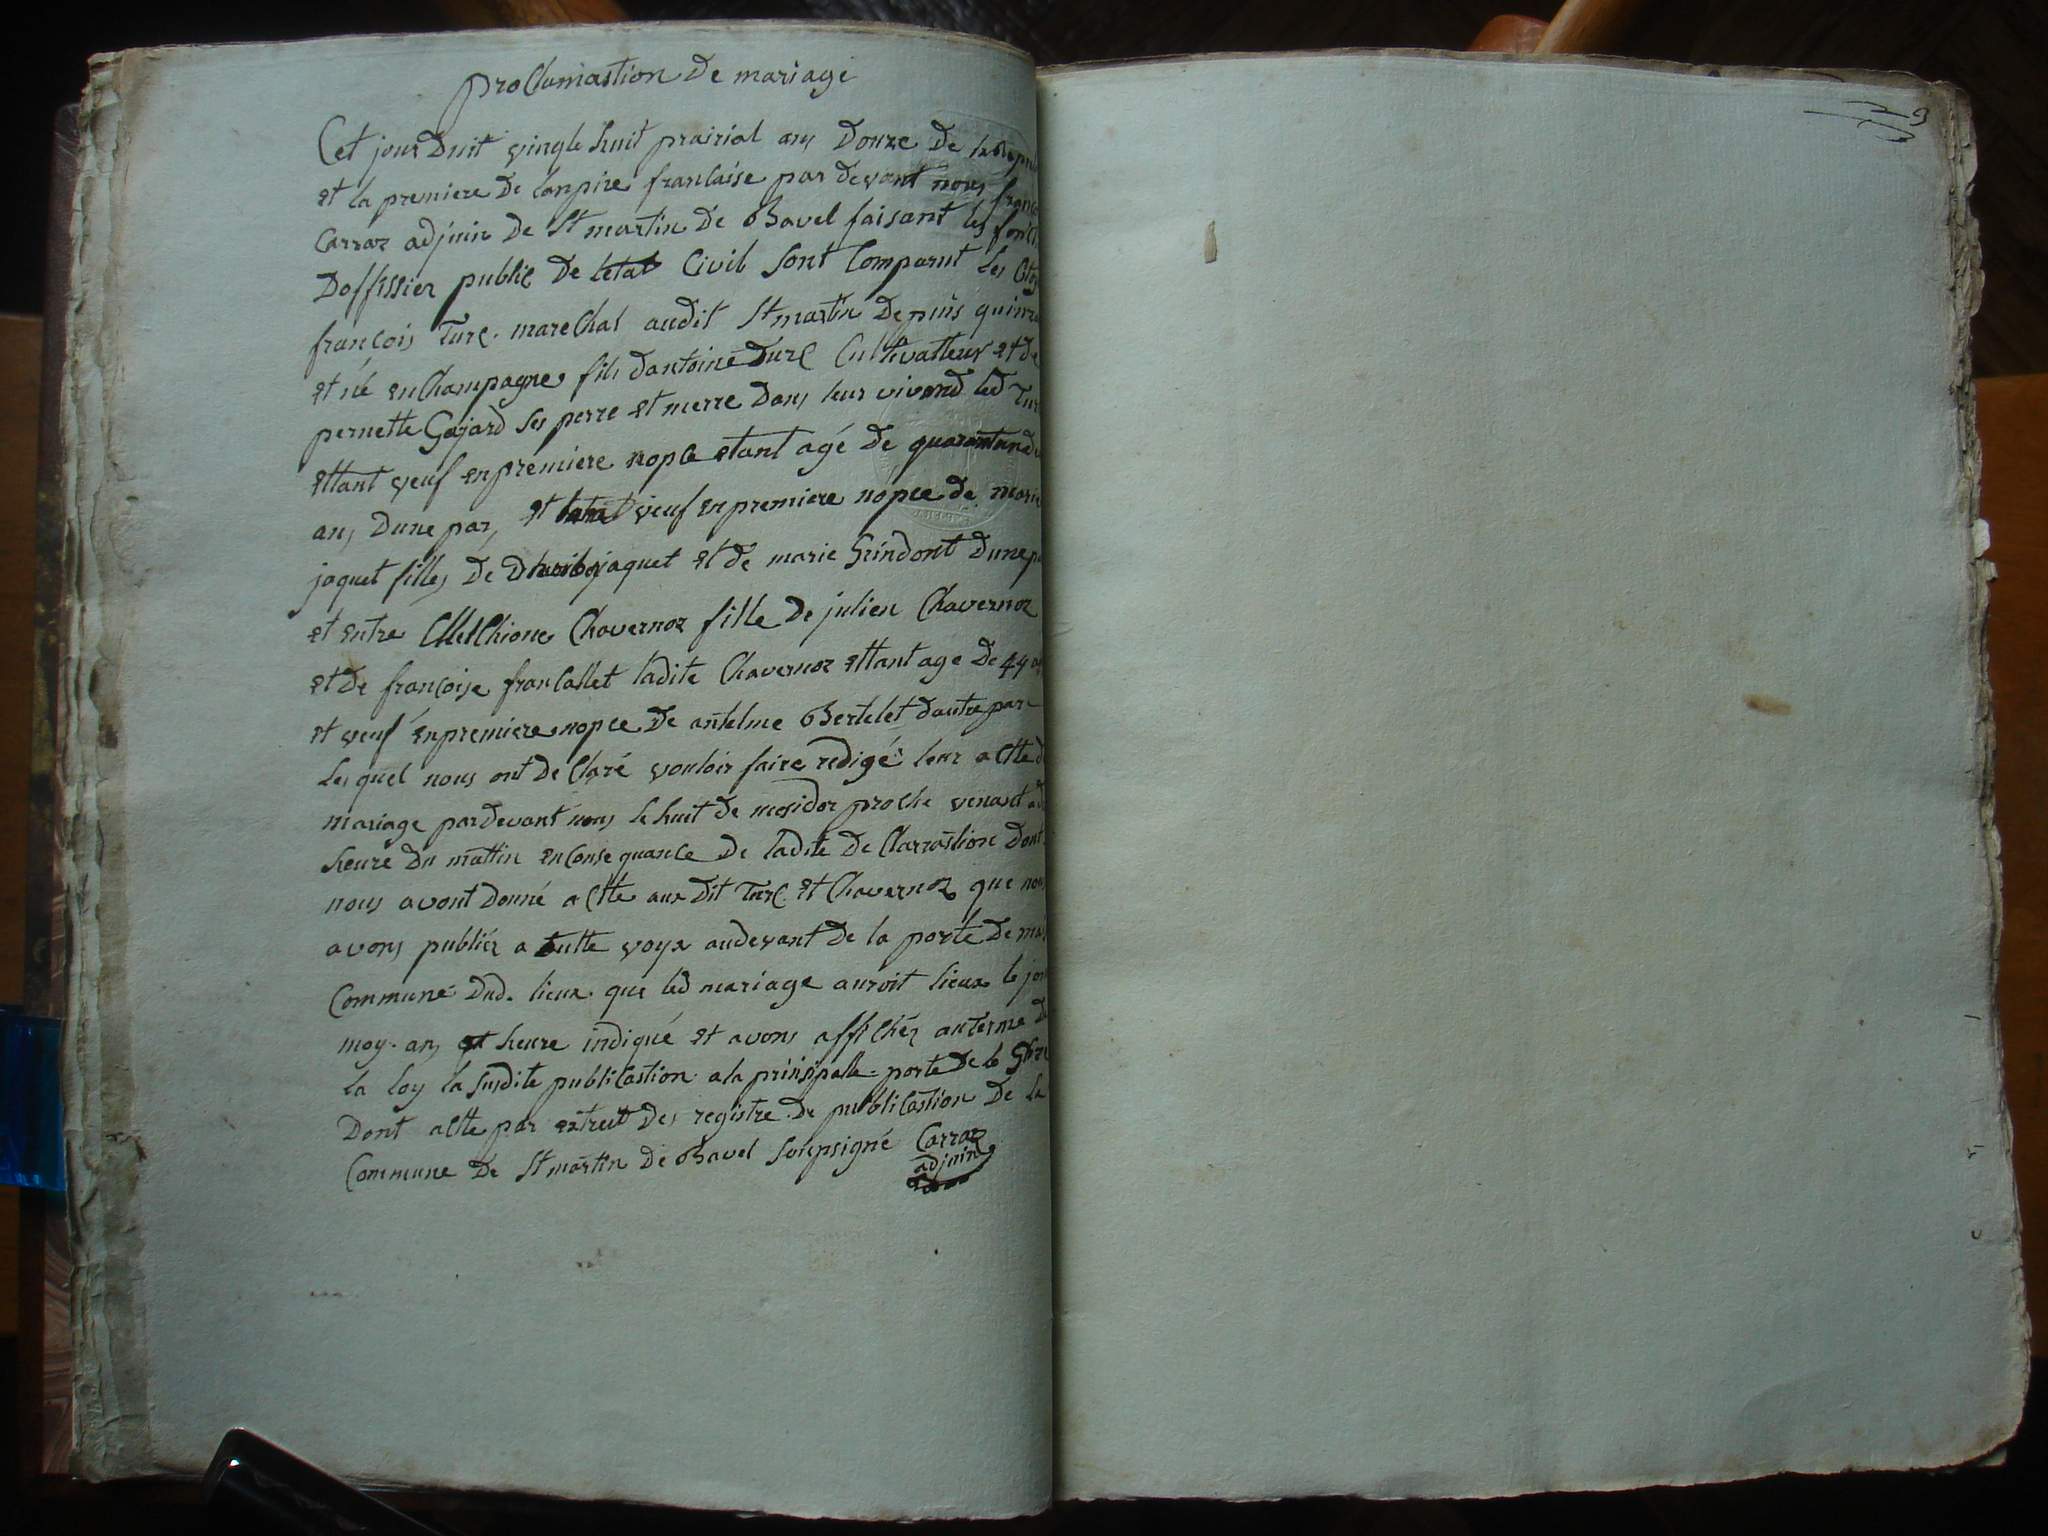 proClamastion De mariage
Cet jour Duit vingle huit prairial ans Douze De la Repu
et la premiere De lanpire franlaise par devant nous franc
Carraz adjuin De St martin De Bavel faisant les fonct
Doffissier public De letat Civil Sont Comparut les Cito
françois Turc marechal audit St martin Depuis quinze
et né en Champagne fils dantoine Turc Cultivatteur et de
pernette Gojard Ses perre et merre Dans leur vivend led Tur
ettant veuf en premiere nopce etant agé De quarante
ans Dune par, et veuf en premiere nopce de marie
jaquet filles De jaquet et de marie Grindont Dune p
et entre Melchione Chavernoz fille De julien Chavernoz
et De françoise franCallet ladite Chavernoz ettant age De 44 an
et veuf en premiere nopce De antelme Bertelet dautre par
Les quel nous ont de Claré vouloir faire redigé leur a Ctte d
mariage par devant nous le huit de mesidor proche venant a
heure Du mattin en Conse quance De ladite De Clarrastion Dont
nous avont Donné a Ctte aux Dit Turc et Chavernoz que nou
avons publiéz a autte voyx au devant De la porte De mai
Commune Dud. lieux que led mariage auroit lieux le jou
moy ans et heure indiqué et avons affichéz auterme D
la loy la Susdite publicastion a la prinsipalle porte De le Glize
Dont actte par extreit Des registre De publicastion De La
Commune De St martin De Bavel Soupsigné Carraz
adjuin
9